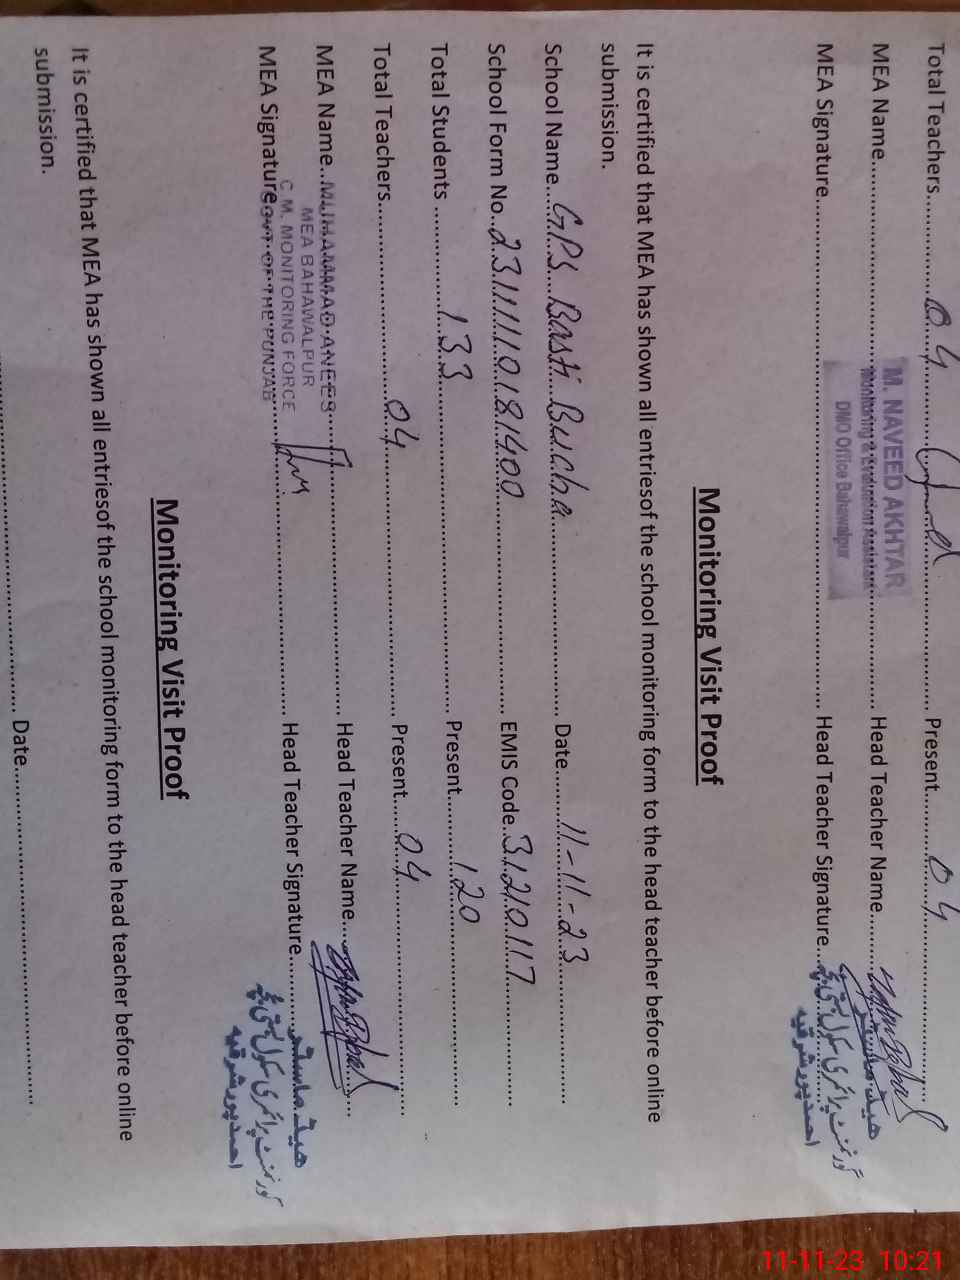 Total Teachers.......04..........Present.......04.......
M. NAVEED AKHTAR
MEA Name..........Head Teacher Name..........
Monitoring & Evaluation Assistant
DMO Office Bahawalpur
MEA Signature..........Head Teacher Signature..........
ھیڈ ماسٹر
گورنمنٹ پرائمری سکول بستی بچہ
احمد پور شرقیہ
Monitoring Visit Proof
It is certified that MEA has shown all entriesof the school monitoring form to the head teacher before online
submission.
School Name....GPS Basti Bucha..........Date....11-11-23.......
School Form No..23111110181400..........EMIS Code..31210117.......
Total Students ..........133..........Present..........120..........
Total Teachers..........04..........Present.......04..........
MEA Name..MUHAMMAD ANEES..........Head Teacher Name..........
MEA BAHAWALPUR
C.M. MONITORING FORCE
GOVT OF THE PUNJAB
MEA Signature..........Head Teacher Signature..........
ھیڈ ماسٹر
گورنمنٹ پرائمری سکول بستی بچہ
احمد پور شرقیہ
Monitoring Visit Proof
It is certified that MEA has shown all entriesof the school monitoring form to the head teacher before online
submission.
Date..........
11-11-23 10:21